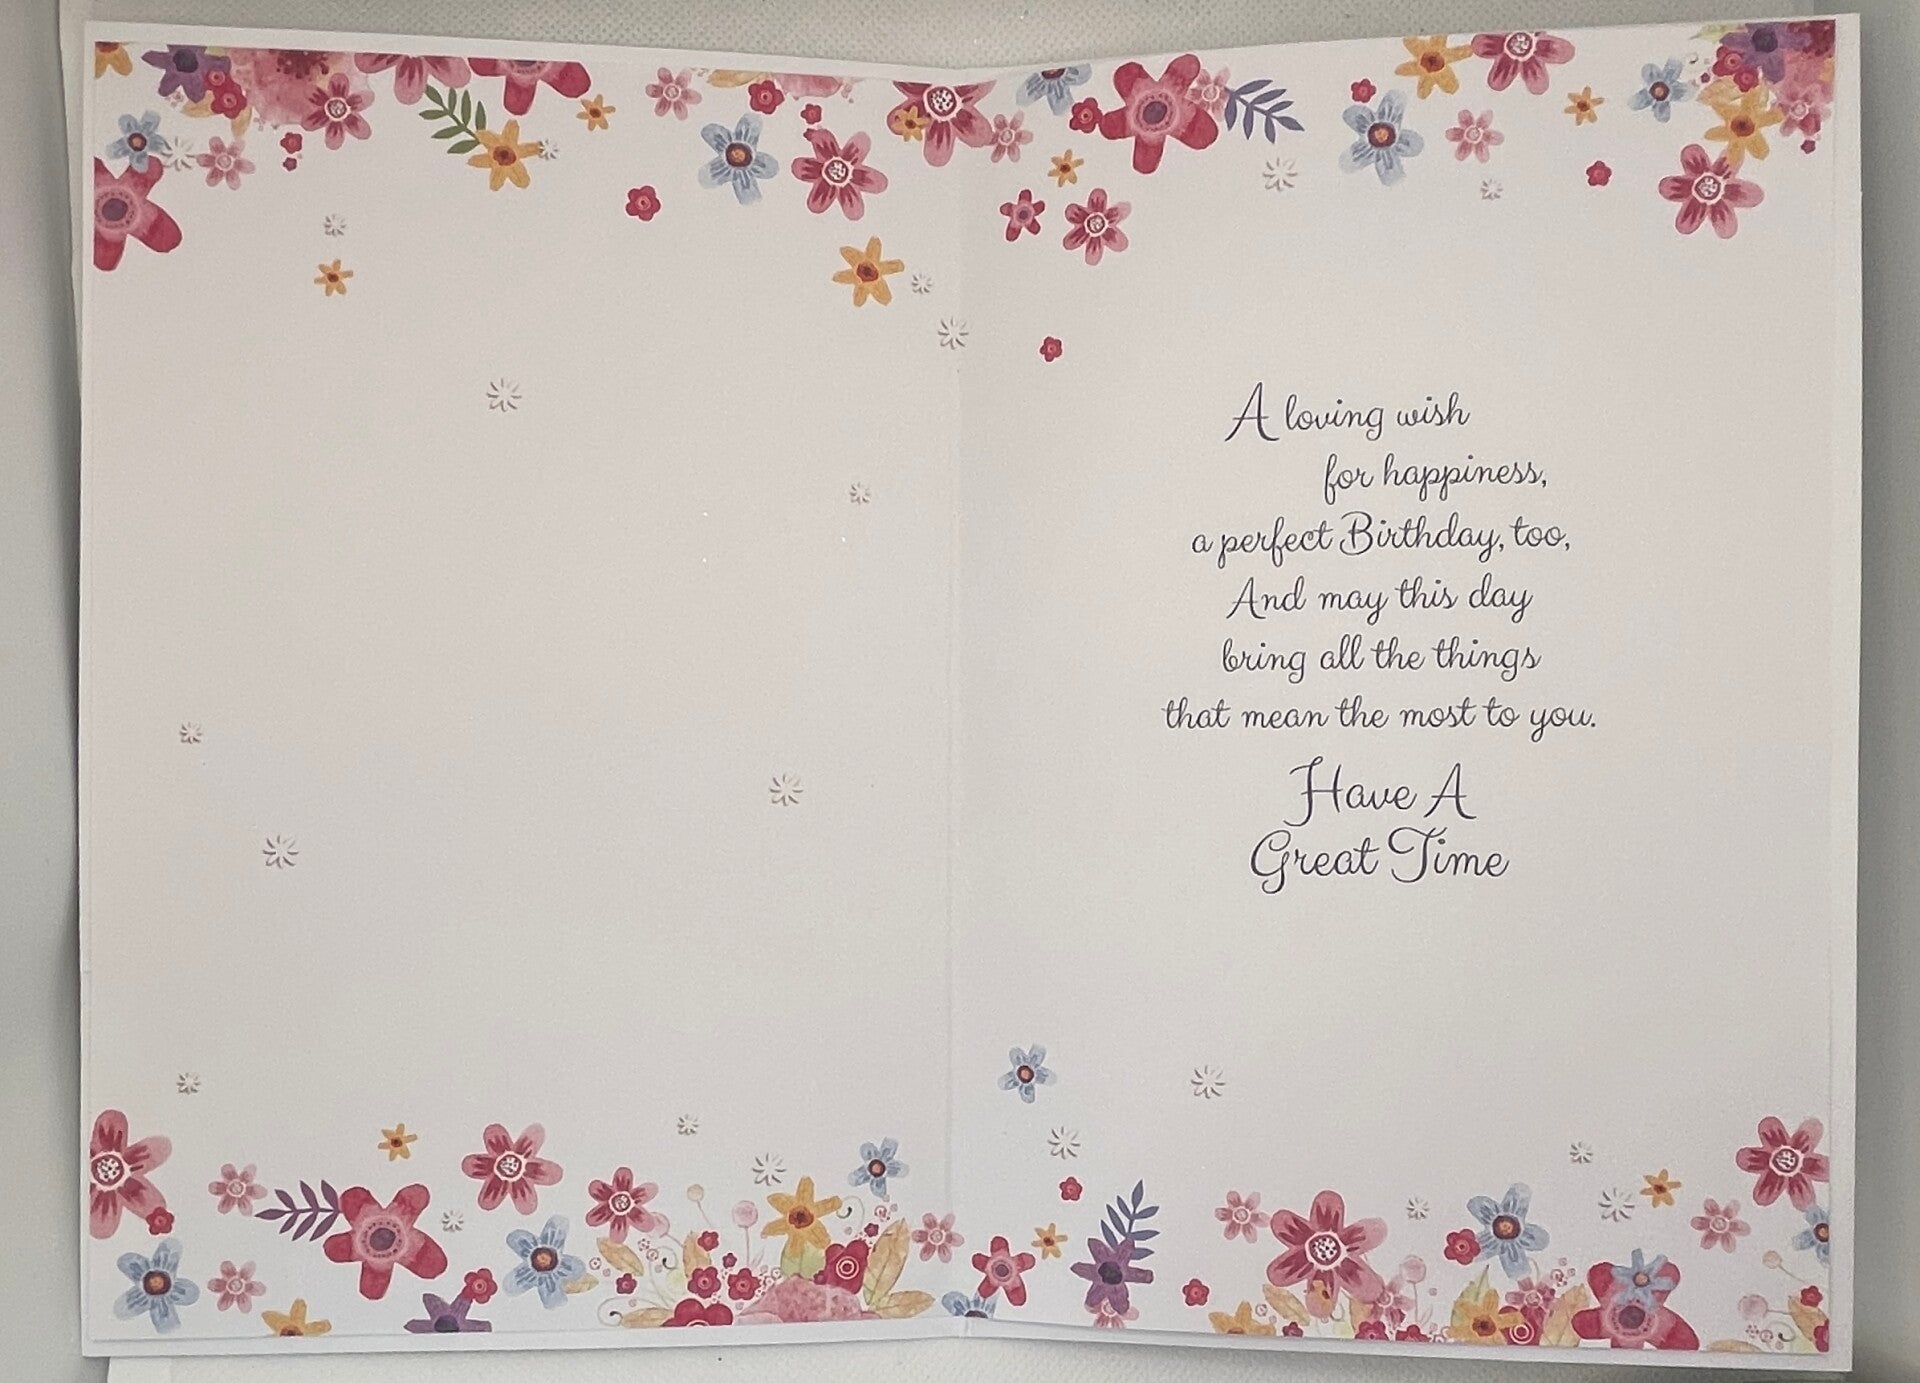 A loving wish
for happiness,
a perfect Birthday, too,
And may this day
bring all the things
that mean the most to you.
Have A
Great Time